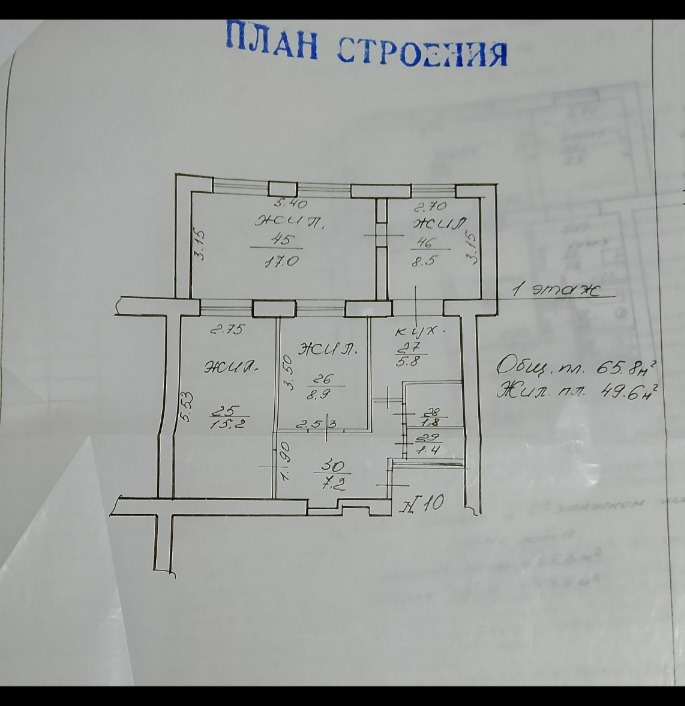 ПЛАН СТРОЕНИЯ
5.40
2.70
жил.
жил
3.15
45
17.0
46
8.5
3.15
1 этаж
2.75
жил.
кух.
27
5.8
жил.
3.50
26
8.9
Общ. пл. 65.8м²
Жил. пл. 49.6м²
5.53
25
15.2
2.53
28
1.8
29
1.4
1.90
30
7.2
N10